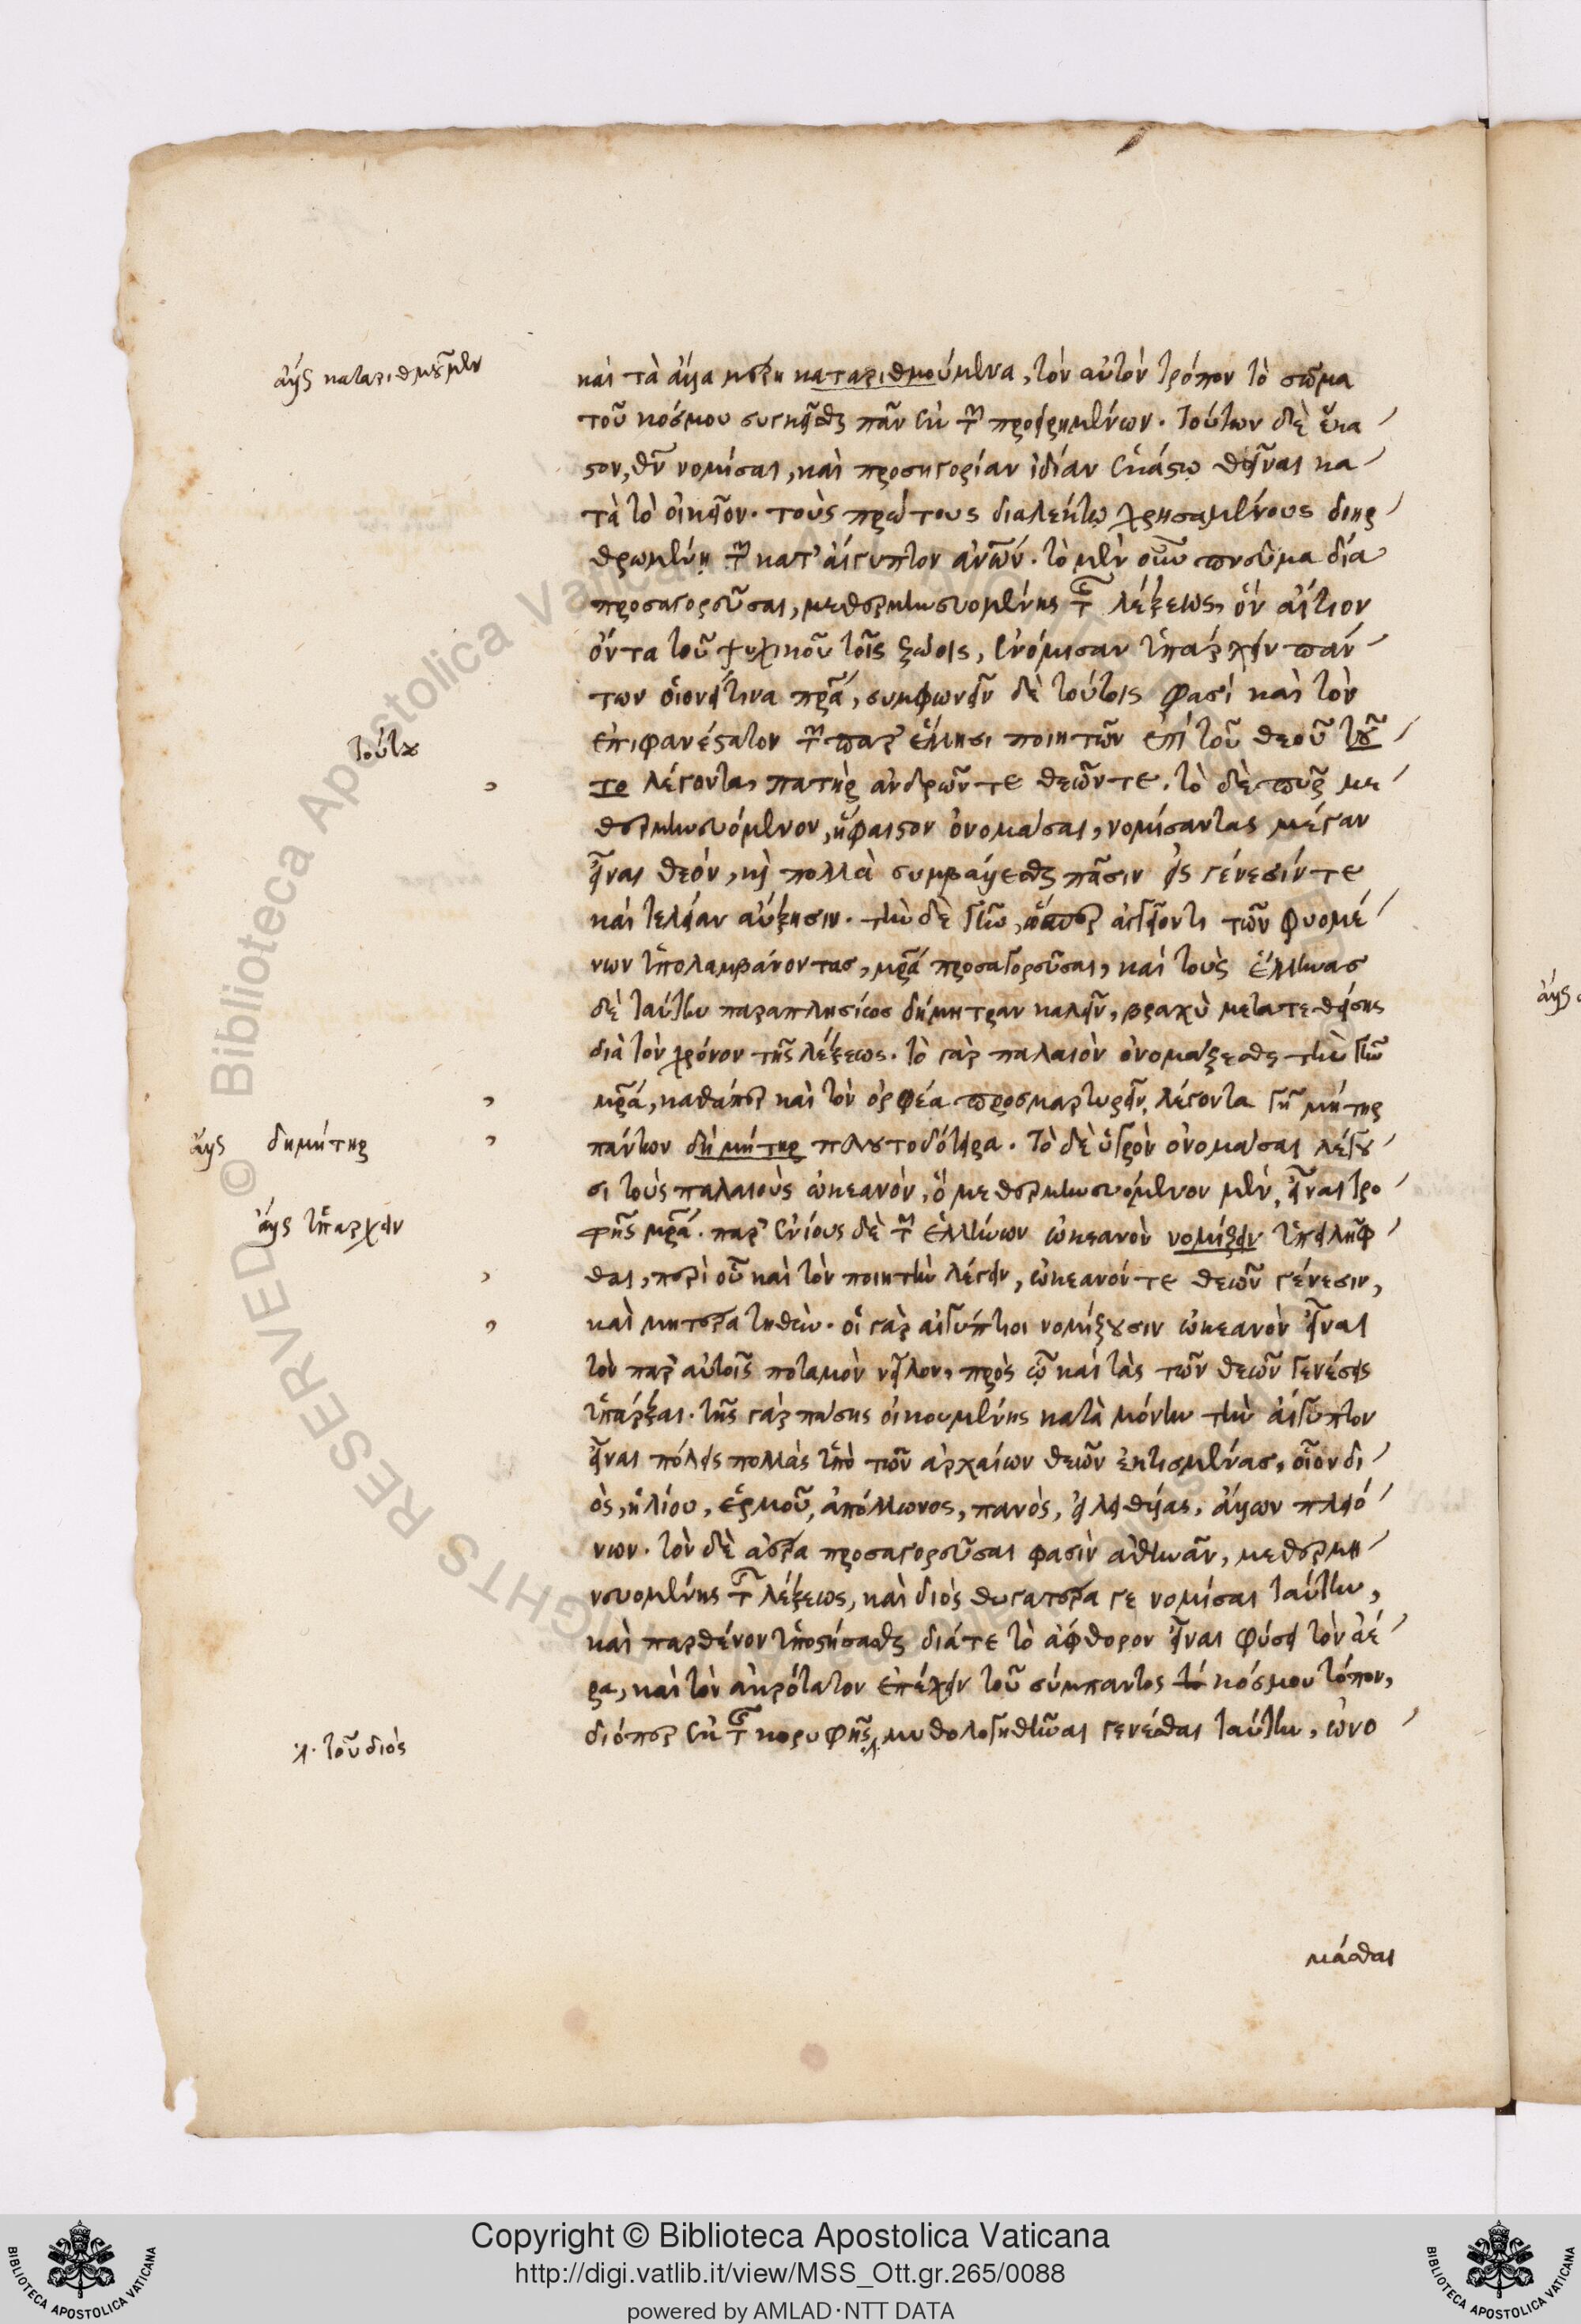 ἄλλως καταριθμοῦμεν
καὶ τὰ ἄλλα μέρη καταριθμούμενα, τὸν αὐτὸν τρόπον τὸ σῶμα
τοῦ κόσμου συγκεῖσθαι πᾶν ἐκ τῶν προειρημένων. τούτων δὲ ἕκα
στον, θεὸν νομίσαι, καὶ προσηγορίαν ἰδίαν ἑκάστῳ θεῖναι κα
τὰ τὸ οἰκεῖον. τοὺς πρώτους διαλέκτῳ χρησαμένους διηρ
θρωμένῃ τῶν κατ' αἴγυπτον ἀνθρώπων. τὸ μὲν οὖν πνεῦμα δία
προσαγορεῦσαι, μεθερμηνευομένης τῆς λέξεως, ὃν αἴτιον
ὄντα τοῦ ψυχικοῦ τοῖς ζώοις, ἐνόμισαν ὑπάρχειν πάν
των οἱονείτινα πατέρα, συμφωνεῖν δὲ τούτοις φασὶ καὶ τὸν
ἐπιφανέστατον τῶν παρ' ἕλλησι ποιητῶν ἐπὶ τοῦ θεοῦ τού
τούτου
το λέγοντα, πατὴρ ἀνδρῶν τε θεῶν τε. τὸ δὲ πῦρ με
θερμηνευόμενον, ἥφαιστον ὀνομάσαι, νομίσαντας μέγαν
εἶναι θεόν, καὶ πολλὰ συμβάλλεσθαι πᾶσιν εἰς γένεσίν τε
καὶ τελείαν αὔξησιν. τὴν δὲ γῆν, ὥσπερ ἀγγεῖόν τι τῶν φυομέ
νων ὑπολαμβάνοντας, μητέρα προσαγορεῦσαι, καὶ τοὺς ἕλληνας
δὲ ταύτην παραπλησίως δήμητραν καλεῖν, βραχὺ μετατεθείσης
διὰ τὸν χρόνον τῆς λέξεως. τὸ γὰρ παλαιὸν ὀνομάζεσθαι τὴν γῆν
μητέρα, καθάπερ καὶ τὸν ὀρφέα προσμαρτυρεῖν, λέγοντα γῆ μήτηρ
ἄλλως δημήτηρ
πάντων δημήτηρ πλουτοδότειρα. τὸ δὲ ὑγρὸν ὀνομάσαι λέγου
σι τοὺς παλαιοὺς ὠκεανόν, ὃ μεθερμηνευόμενον μὲν, εἶναι τρο
ἄλλως ὑπάρχειν
φῆς μητέρα. παρ' ἐνίους δὲ τῶν ἑλλήνων ὠκεανὸν νομίζειν ὑπειλῆφ
θαι, περὶ οὗ καὶ τὸν ποιητὴν λέγειν, ὠκεανόν τε θεῶν γένεσιν,
καὶ μητέρα τηθύν. οἱ γὰρ αἰγύπτιοι νομίζουσιν ὠκεανὸν εἶναι
τὸν παρ' αὐτοῖς ποταμὸν νεῖλον, πρὸς ᾧ καὶ τὰς τῶν θεῶν γενέσεις
ὑπάρξαι. τῆς γὰρ πάσης οἰκουμένης κατὰ μόνην τὴν αἴγυπτον
εἶναι πόλεις πολλὰς ὑπὸ τῶν ἀρχαίων θεῶν ἐκτισμένας, οἷον δι
ὸς, ἡλίου, ἑρμοῦ, ἀπόλλωνος, πανὸς, εἰλειθυίας, ἄλλων πλειό
νων. τὸν δὲ ἀέρα προσαγορεῦσαι φασὶν ἀθηνᾶν, μεθερμη
νευομένης τῆς λέξεως, καὶ διὸς θυγατέρα γε νομίσαι ταύτην,
καὶ παρθένον ὑποστήσασθαι διά τε τὸ ἄφθορον εἶναι φύσει τὸν ἀέ
ρα, καὶ τὸν ἀκρότατον ἐπέχειν τοῦ σύμπαντος κόσμου τόπον,
διόπερ ἐκ τῆς κορυφῆς μυθολογηθῆναι γενέσθαι ταύτην, ὠνο
τοῦ διὸς
μάσθαι
Copyright © Biblioteca Apostolica Vaticana
http://digi.vatlib.it/view/MSS_Ott.gr.265/0088
powered by AMLAD·NTT DATA